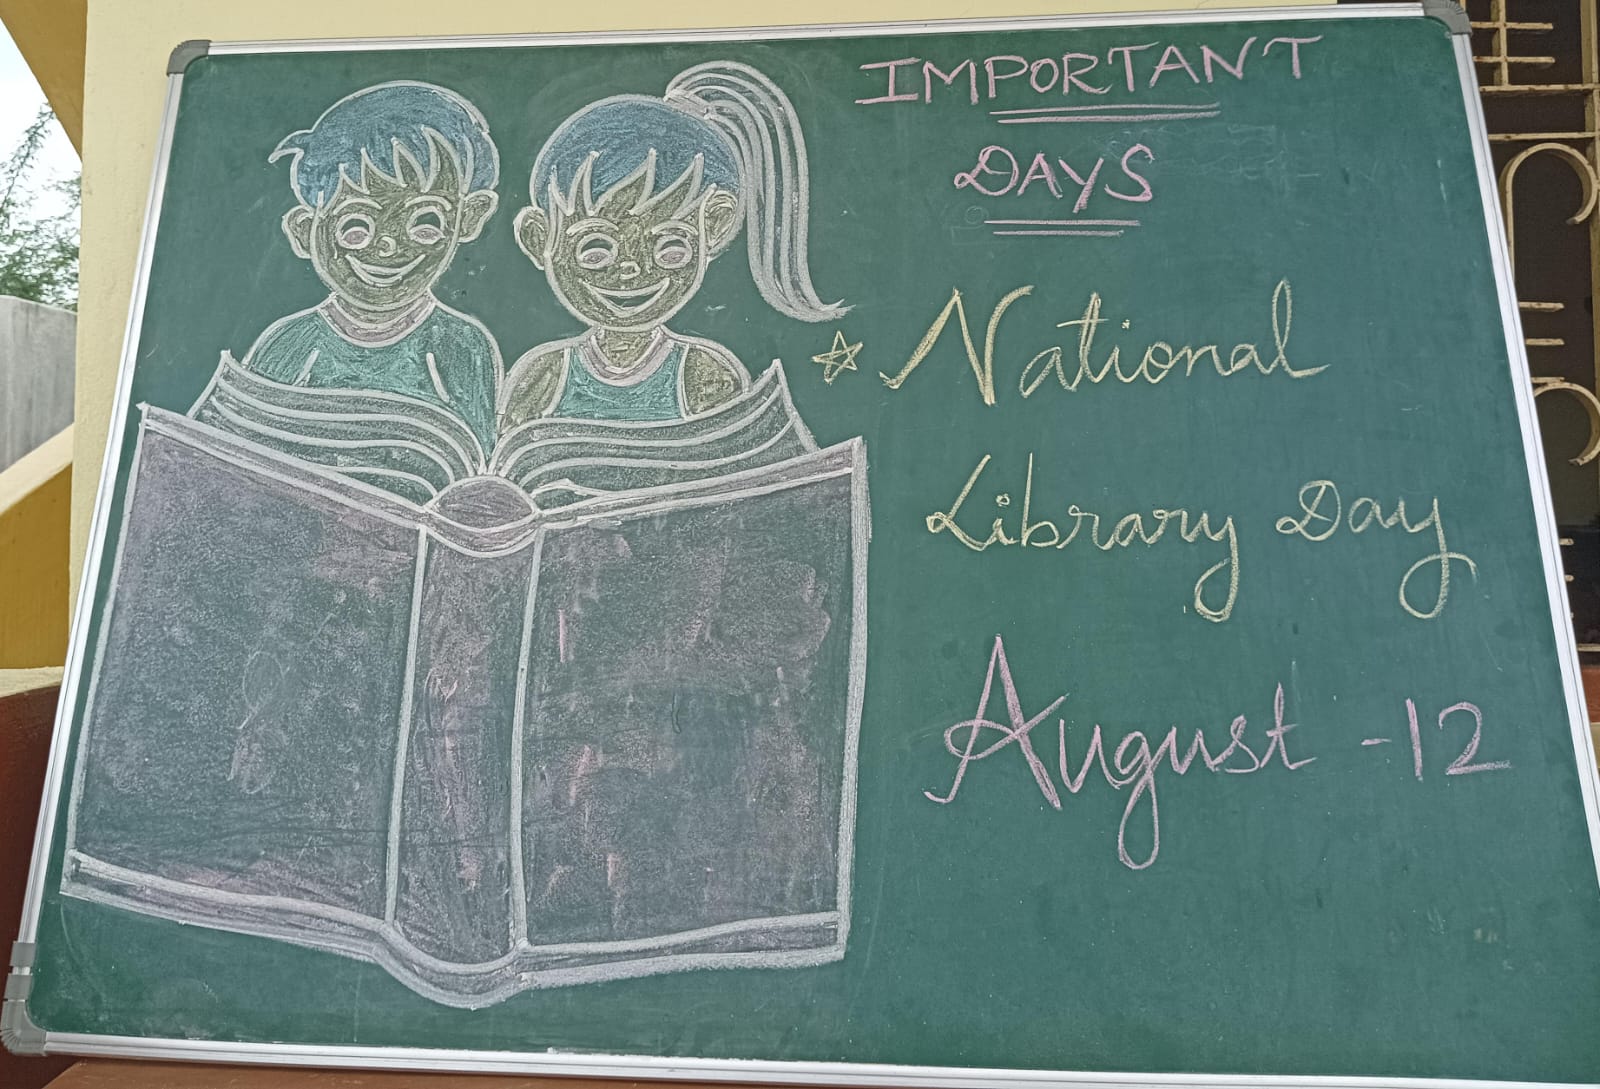 IMPORTANT
DAYS
☆ National
Library Day
August - 12